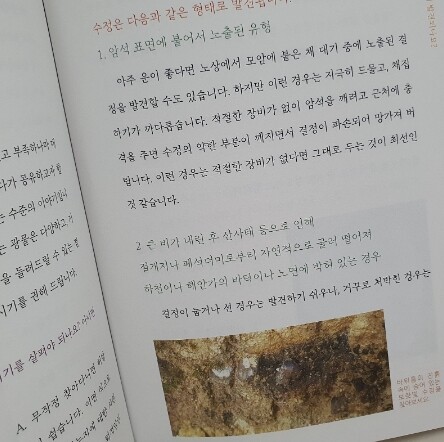 수정은 다음과 같은 형태로 발견됩니다.
1. 암석 표면에 붙어서 노출된 유형
아주 운이 좋다면 노상에서 모암에 붙은 채 대기 중에 노출된 결
정을 발견할 수도 있습니다. 하지만 이런 경우는 지극히 드물고, 채집
하기가 까다롭습니다. 적절한 장비가 없이 암석을 깨려고 근처에 충
격을 주면 수정의 약한 부분이 깨지면서 결정이 파손되어 망가져 버
립니다. 이런 경우는 적절한 장비가 없다면 그대로 두는 것이 최선인
것 같습니다.
2 큰 비가 내린 후 산사태 등으로 인해
절개지나 폐석더미로부터 자연적으로 굴러 떨어져
하천이나 해안가의 바닥이나 노면에 박혀 있는 경우
결정이 눕거나 선 경우는 발견하기 쉬우나, 거꾸로 처박힌 경우는
고 부족하나마
다가 공유하고자
는 수준의 이야기
은 광물은 다양하고,
을 들려드릴 수 있는
시기를 권해 드립니다.
기를 살펴야 되나요?
A. 무작정 찾아다니면
쉽습니다. 이런